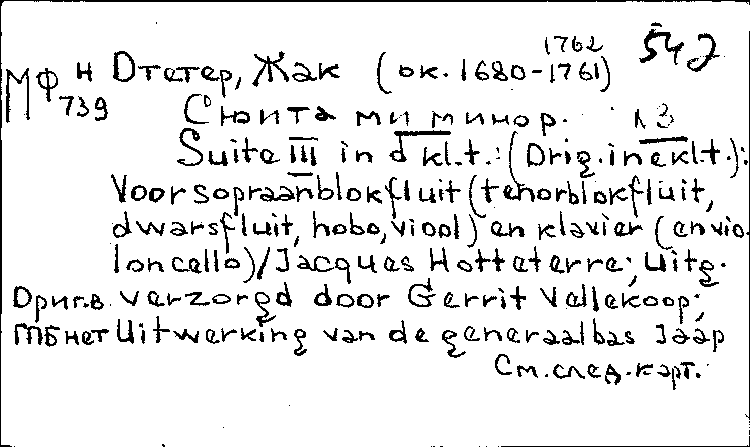 1762
542
МФ н Оттетер, Жак (ок. 1680-1761)
739 Сюита ми минор. №3
Suite III in d kl.t.: (Orig. in e klt.):
Voor sopraanblokfluit (tenorblokfluit,
dwarsfluit, hobo, viool) en klavier (en vio-
loncello) / Jacques Hotteterre; Uitg.
Ориг.в verzorgd door Gerrit Vellekoop;
МБ нет Uitwerking van de generaalbas Jaap
См. след. карт.